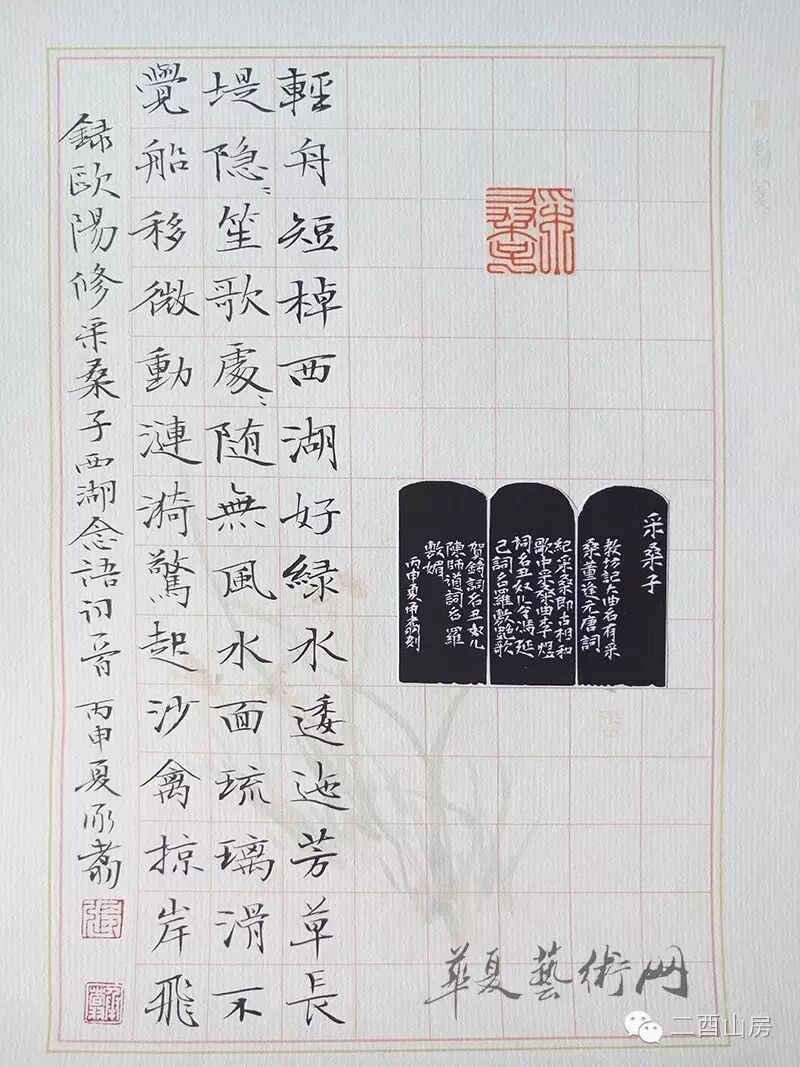 采桑子
采桑子
教坊記大曲名有采
桑董逢元唐詞
紀采桑即古相和
歌中采桑曲李煜
词名丑奴儿令馮延
己詞名羅敷艷歌
賀鑄詞名丑奴儿
陳師道詞名羅
敷媚
丙申夏承翥刻
輕舟短棹西湖好緑水逶迆芳草長
堤隐〻笙歌處〻随無風水面琉璃滑不
覺船移微動漣漪驚起沙禽掠岸飛
録歐陽修采桑子西湖念語初音 丙申夏承翥
張
華夏藝術网
二酉山房